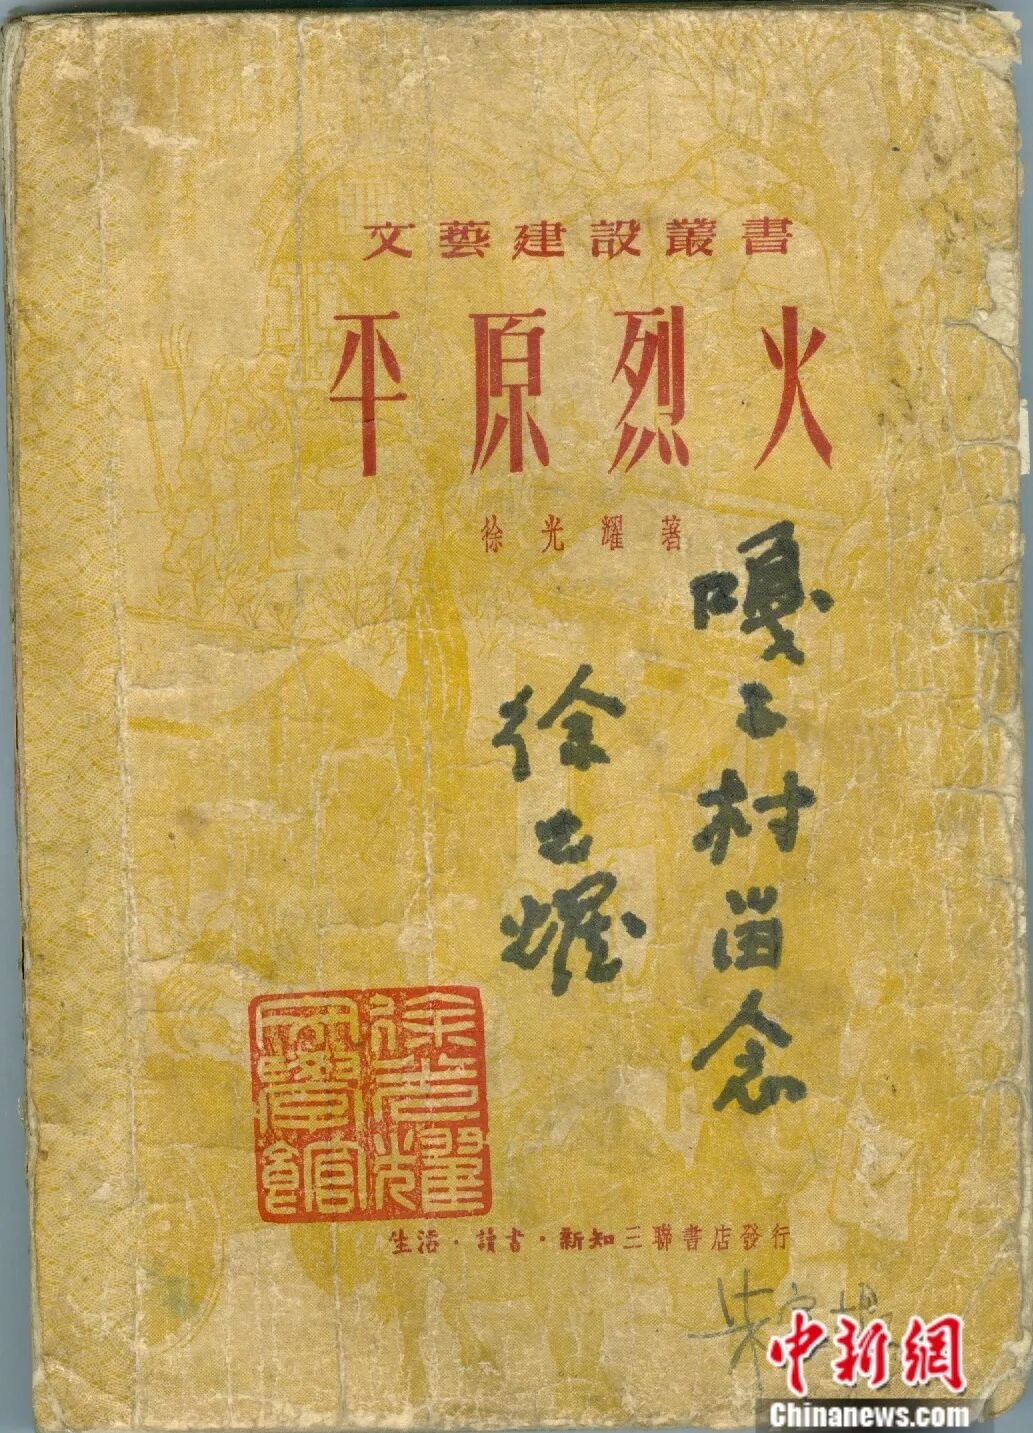 文藝建設叢書
平原烈火
徐光耀著
嘎〻村留念
徐光耀
徐光耀文學館
生活·讀書·新知三聯書店發行
中新網
Chinanews.com